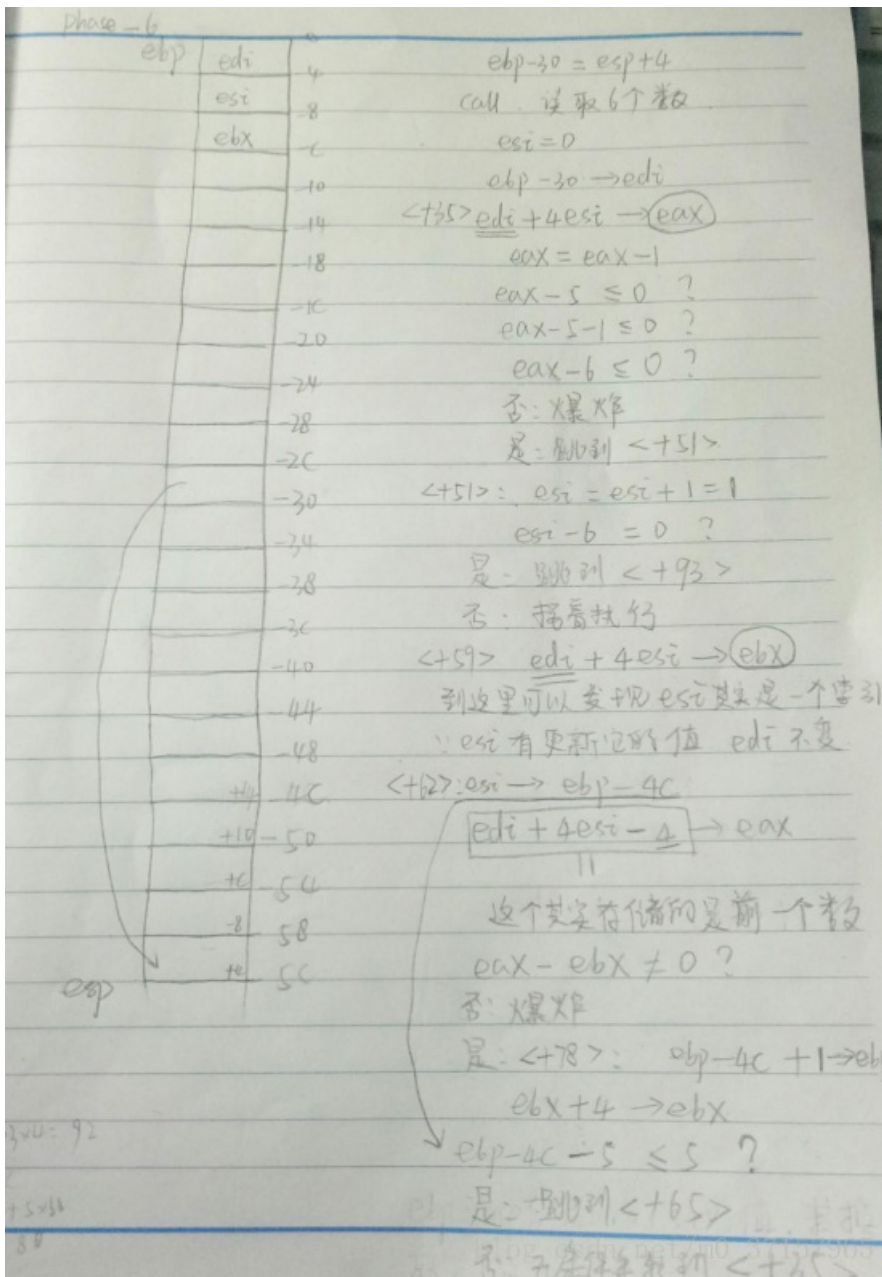 phase-6
ebp
edi
esi
ebx
0
-4
-8
-C
-10
-14
-18
-1C
-20
-24
-28
-2C
-30
-34
-38
-3C
-40
-44
-48
-4C
+10 -50
+C -54
-8 58
+4 5C
esp
ebp-30 = esp+4
call 读取6个数
esi=0
ebp-30→edi
<+35> edi+4esi→eax
eax=eax-1
eax-5 ≤0 ?
eax-5-1≤0 ?
eax-6 ≤0 ?
否:爆炸
是:跳到 <+51>
<+51>: esi=esi+1=1
esi-6 =0 ?
是:跳到 <+93>
否:接着执行
<+59> edi+4esi→ebx
到这里可以发现esi其实是一个索引
∵esi有更新它的值 edi不变
<+62>:esi→ebp-4C
edi+4esi-4→eax
这个其实存储的是前一个数
eax-ebx≠0 ?
否:爆炸
是:<+78>: ebp-4C +1→eb
ebx+4→ebx
ebp-4C-5 ≤5 ?
是:跳到<+65>
否:无条件 <+35>
3×4=92
+5×38
80